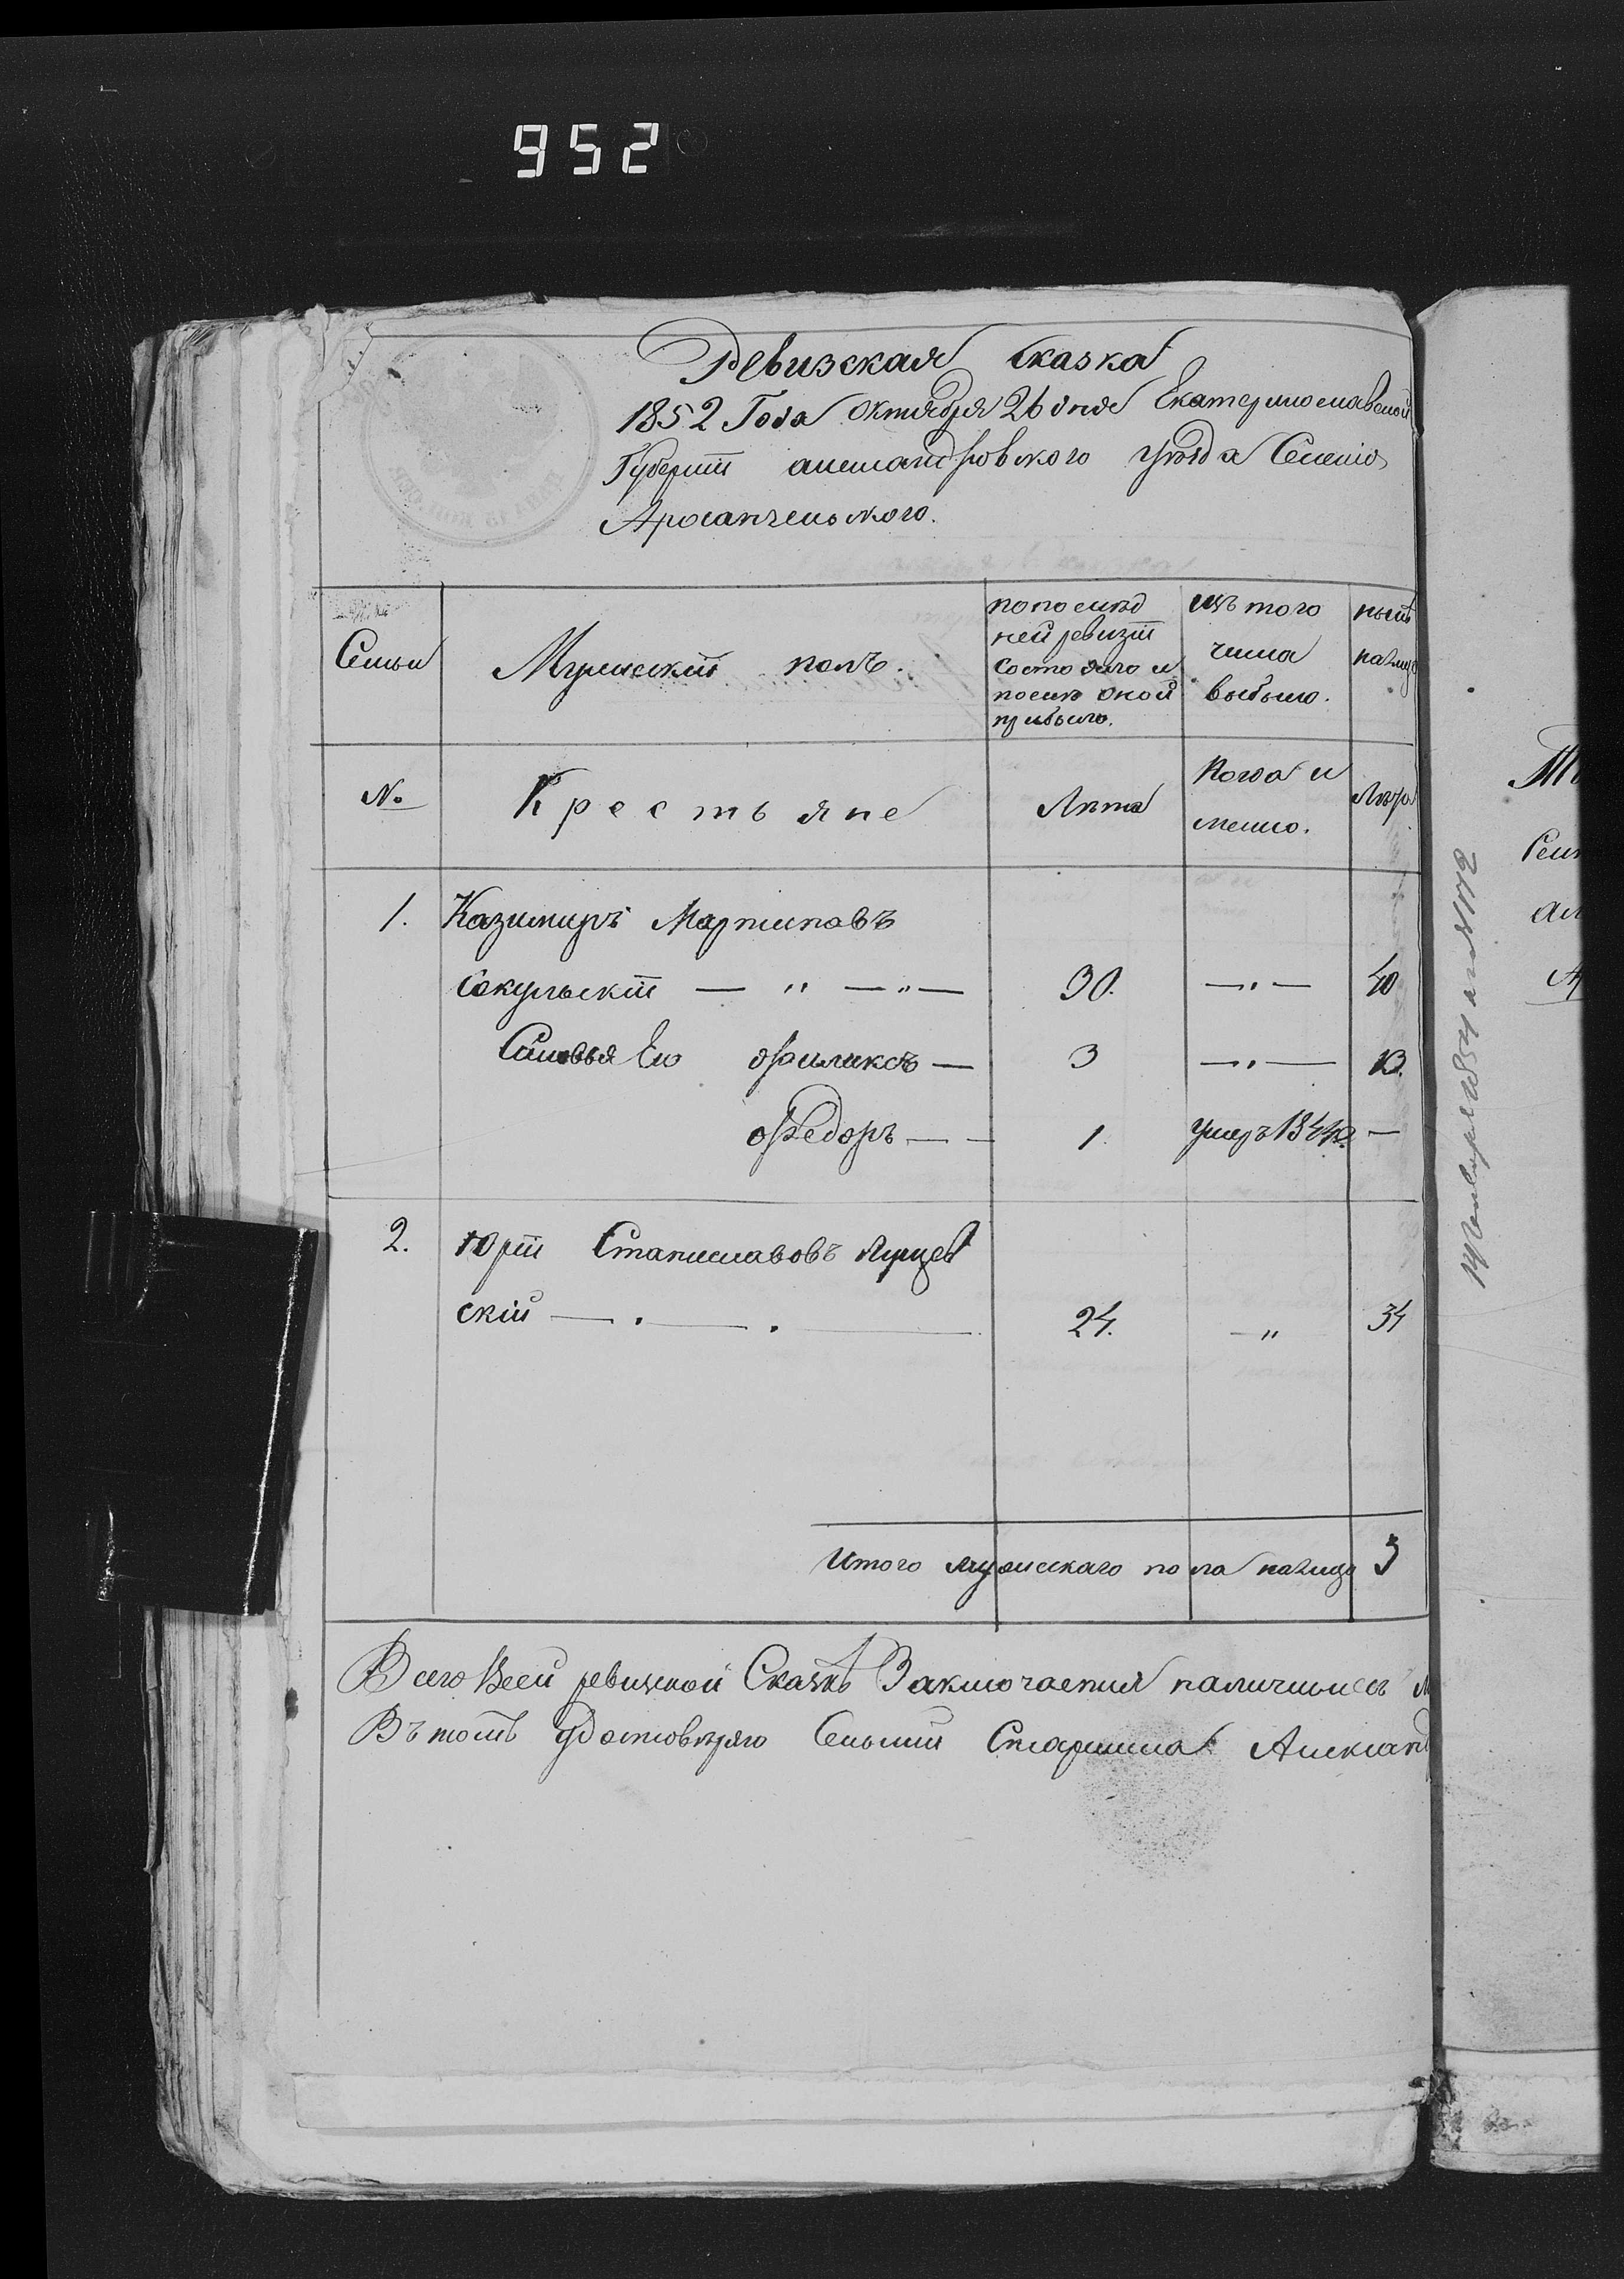 952
Ревизская Сказка
1852 Года Октября 26 дня Екатеринославской
Губернии александровского уѣзда Селенію
Архангельского.
Семьи
Мужескій полъ.
попослѣд
ней ревизіи
состояло и
послѣ оной
прибыло.
изъ того
числа
выбыло.
нынѣ
налицо
№
Крестьяне
Лѣта
Когда и
менно.
Лѣта
1. Казимиръ Мартиновъ
Сокульскій — " — " — 30. — " — 40
Сыновья Его Филиксъ — 3 — " — 13.
Федоръ — — 1 умеръ 1844. —
2. Юрій Станиславовъ
скій — . — . — 24. — " 34
Итого мужескаго пола налицо 3
Всего Всей ревизской Сказкѣ Заключается наличныхъ м
Въ томъ удостовѣряю Сельскій Старшина Александ